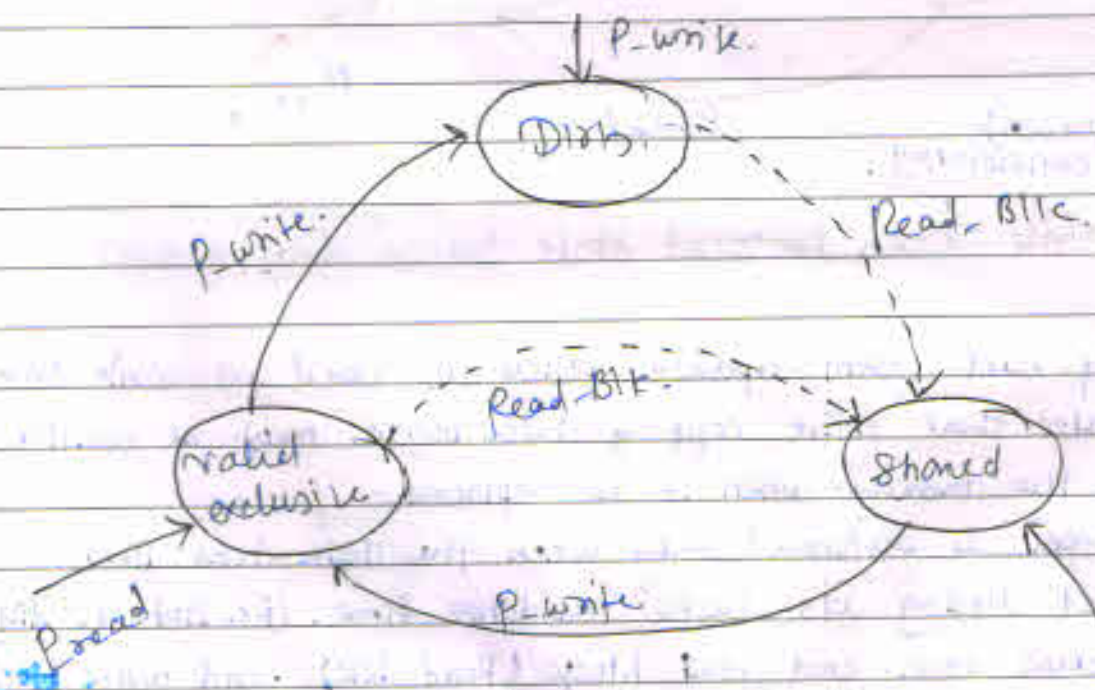 P_write.
Dirty.
P_write.
Read_Blk.
Read_Blk.
Valid
exclusive
Shared
P_write
P_read